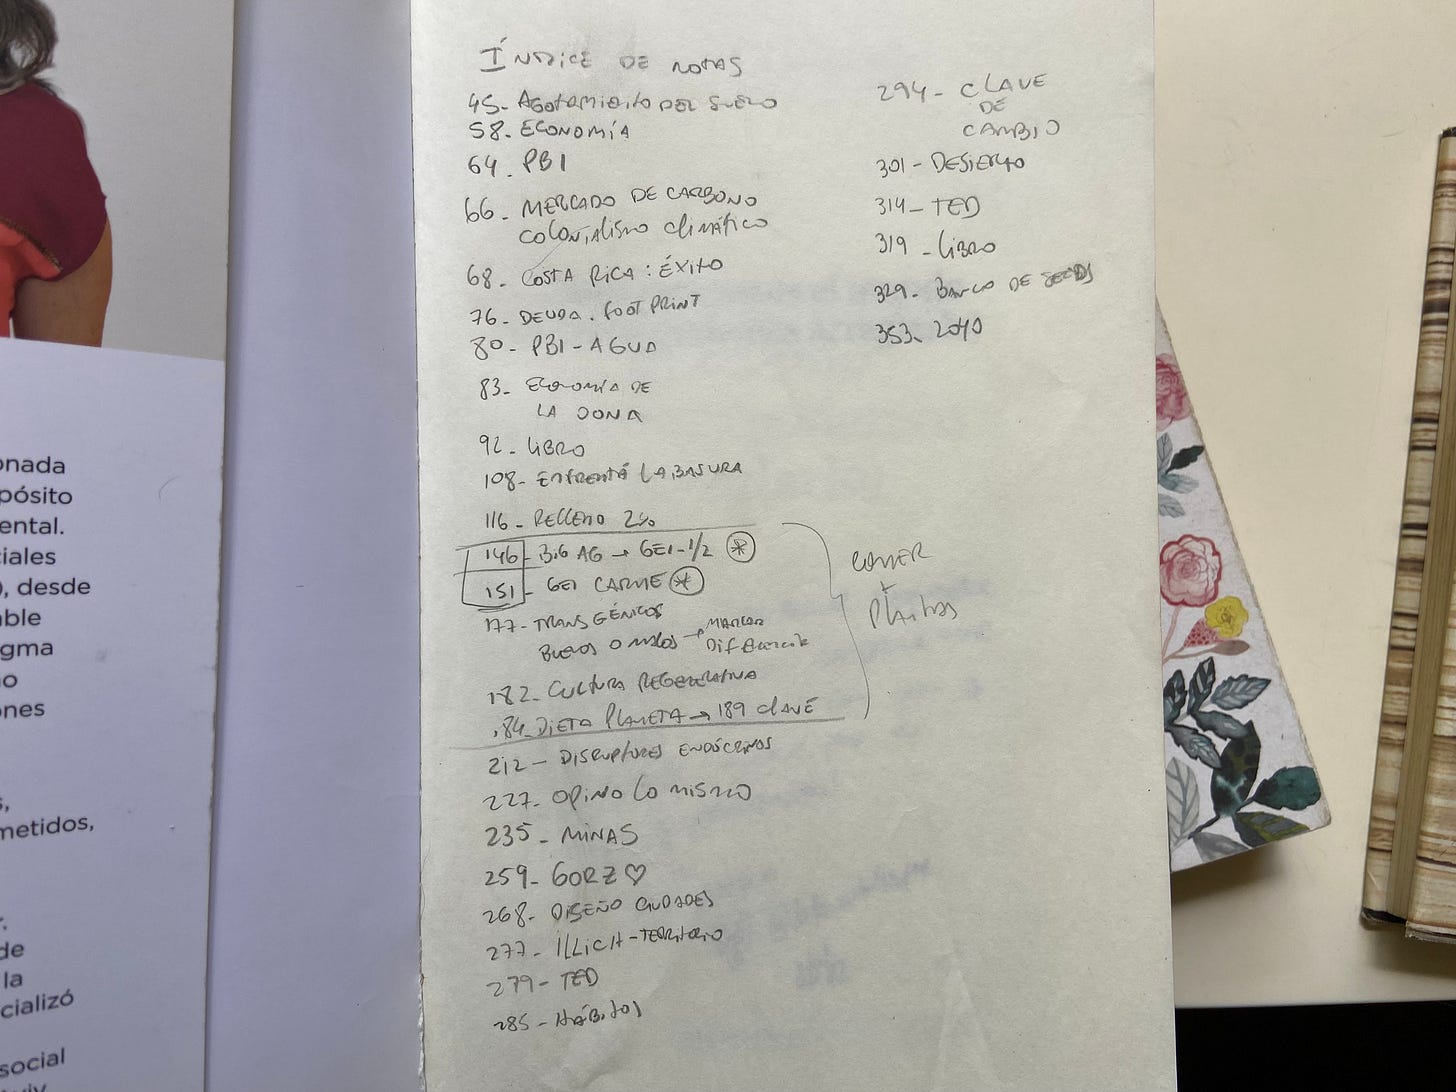 onada
pósito
ental.
ciales
), desde
able
igma
no
ones
s,
metidos,
r.
de
la
cializó
social
Índice de notas
45- Agotamiento del suelo
58- Economía
64. PBI
66- Mercado de carbono
colonialismo climático
68- Costa Rica: éxito
76- Deuda. Footprint
80- PBI-Agua
83- Economía de
la dona
92- Libro
108- Enfrentá la basura
116- Relleno 2%
146- Big AG → GEI-1/2 *
151- GEI carne *
177- Transgénicos
buenos o malos → marcar
diferencia
182- Cultura regenerativa
184- Dieta planeta → 189 clave
comer
+
plantas
212- Disruptores endócrinos
227- Opino lo mismo
235- Minas
259- Gorz ♡
268- Diseño ciudades
277- Illich-territorio
279- TED
285- Hábitos
294- Clave
de
cambio
301- Desierto
314- TED
319- Libro
329- Banco de
353- 2040